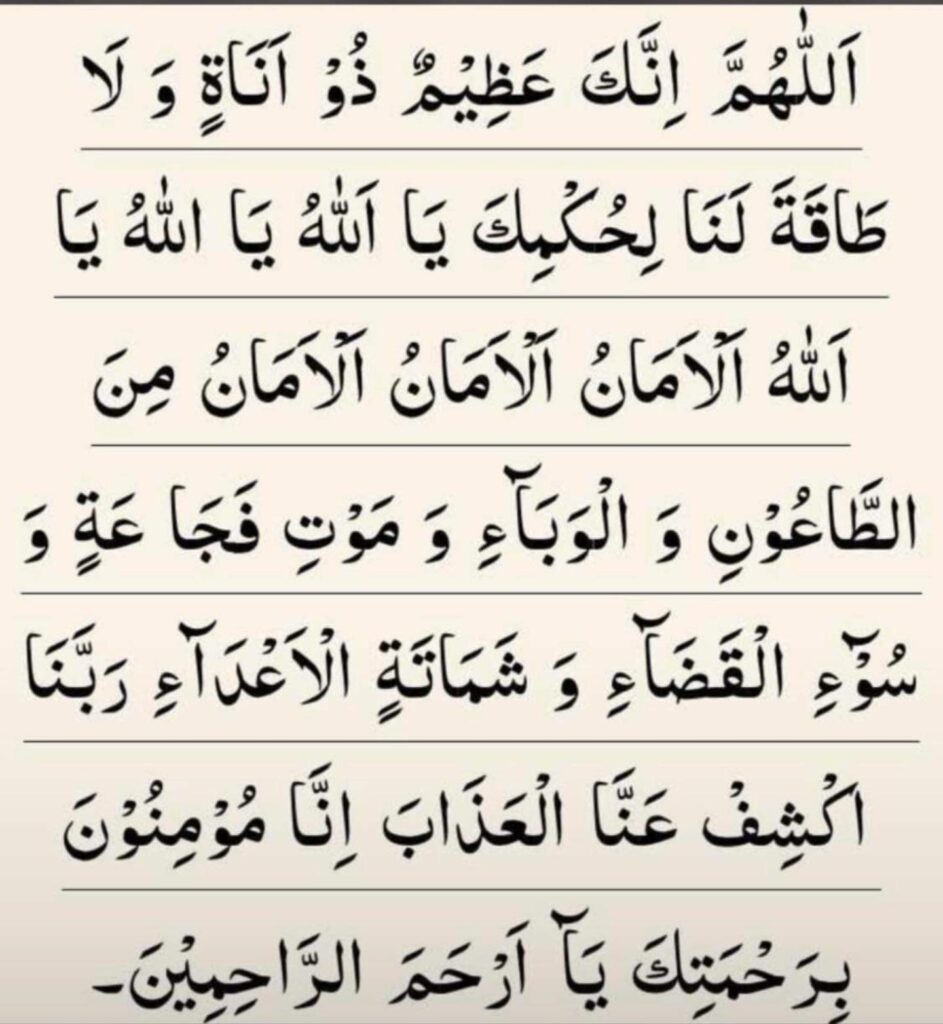 اَللّٰهُمَّ اِنَّكَ عَظِيْمٌ ذُوْ اَنَاةٍ وَ لَا
طَاقَةَ لَنَا لِحُكْمِكَ يَا اَللّٰهُ يَا اللّٰهُ يَا
اَللّٰهُ اَلْاَمَانُ اَلْاَمَانُ اَلْاَمَانُ مِنَ
الطَّاعُوْنِ وَ الْوَبَآءِ وَ مَوْتِ فَجَا عَةٍ وَ
سُوْٓءِ الْقَضَآءِ وَ شَمَاتَةِ الْاَعْدَآءِ رَبَّنَا
اكْشِفْ عَنَّا الْعَذَابَ اِنَّا مُوْمِنُوْنَ
بِرَحْمَتِكَ يَآ اَرْحَمَ الرَّاحِمِيْنَ۔